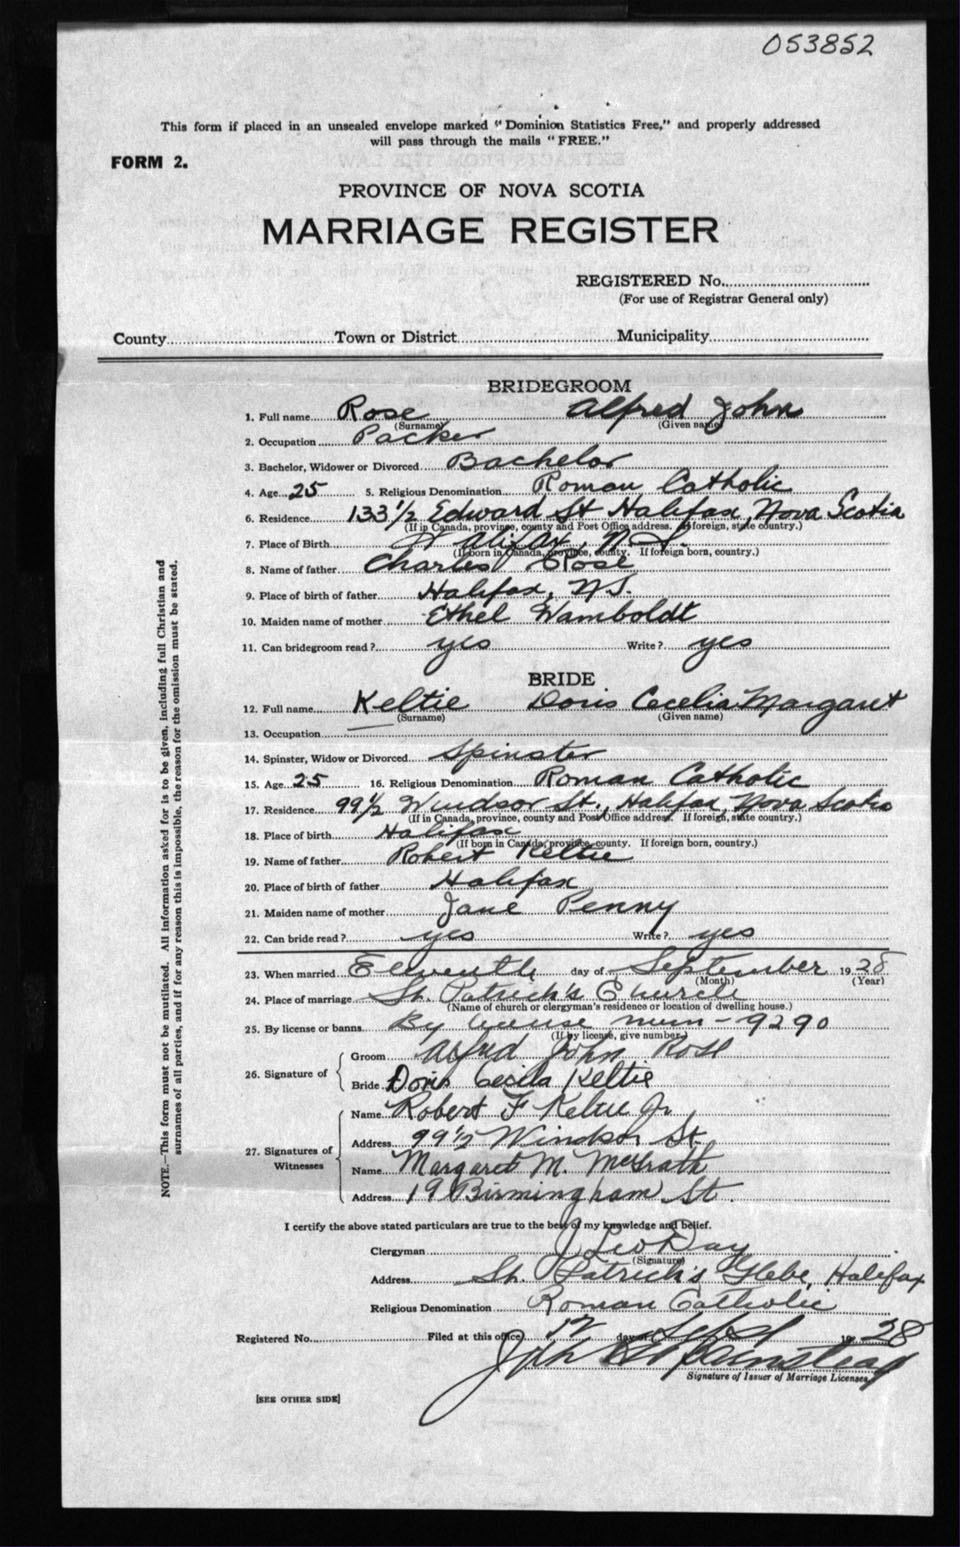 053852
This form if placed in an unsealed envelope marked "Dominion Statistics Free," and properly addressed
will pass through the mails "FREE."
FORM 2.
PROVINCE OF NOVA SCOTIA
MARRIAGE REGISTER
REGISTERED No.
(For use of Registrar General only)
County Town or District Municipality
BRIDEGROOM
1. Full name Rose Alfred John
(Surname) (Given name)
2. Occupation Packer
3. Bachelor, Widower or Divorced Bachelor
4. Age 25 5. Religious Denomination Roman Catholic
6. Residence 133 1/2 Edward St Halifax, Nova Scotia
(If in Canada, province, county and Post Office address. If foreign, state country.)
7. Place of Birth Halifax, N.S.
(If born in Canada, province, county. If foreign born, country.)
8. Name of father Charles Rose
9. Place of birth of father Halifax, N.S.
10. Maiden name of mother Ethel Wamboldt
11. Can bridegroom read? yes Write? yes
BRIDE
12. Full name Keltie Doris Cecelia Margaret
(Surname) (Given name)
13. Occupation
14. Spinster, Widow or Divorced Spinster
15. Age 25 16. Religious Denomination Roman Catholic
17. Residence 99 1/2 Windsor St., Halifax, Nova Scotia
(If in Canada, province, county and Post Office address. If foreign, state country.)
18. Place of birth Halifax
(If born in Canada, province, county. If foreign born, country.)
19. Name of father Robert Keltie
20. Place of birth of father Halifax
21. Maiden name of mother Jane Penny
22. Can bride read? yes Write? yes
23. When married Eleventh day of September 1928
(Month) (Year)
24. Place of marriage St. Patrick's Church
(Name of church or clergyman's residence or location of dwelling house.)
25. By license or banns By license num - 9290
(If by license, give number.)
26. Signature of
Groom Alfred John Rose
Bride Doris Cecilia Keltie
27. Signatures of Witnesses
Name Robert F Keltie Jr.
Address 99 1/2 Windsor St.
Name Margaret M. McGrath
Address 19 Birmingham St.
I certify the above stated particulars are true to the best of my knowledge and belief.
Clergyman J Leo Day
(Signature)
Address St. Patrick's Glebe, Halifax
Religious Denomination Roman Catholic
Registered No. Filed at this office 12 day of Sept 1928
John
Signature of Issuer of Marriage Licenses
[SEE OTHER SIDE]
NOTE.—This form must not be mutilated. All information asked for is to be given, including full Christian and
surnames of all parties, and if for any reason this is impossible, the reason for the omission must be stated.